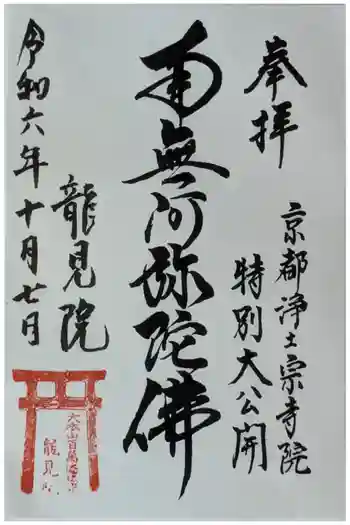 奉拝
京都浄土宗寺院
特別大公開
南無阿弥陀佛
龍見院
令和六年十月七日
大本山百萬遍
龍見